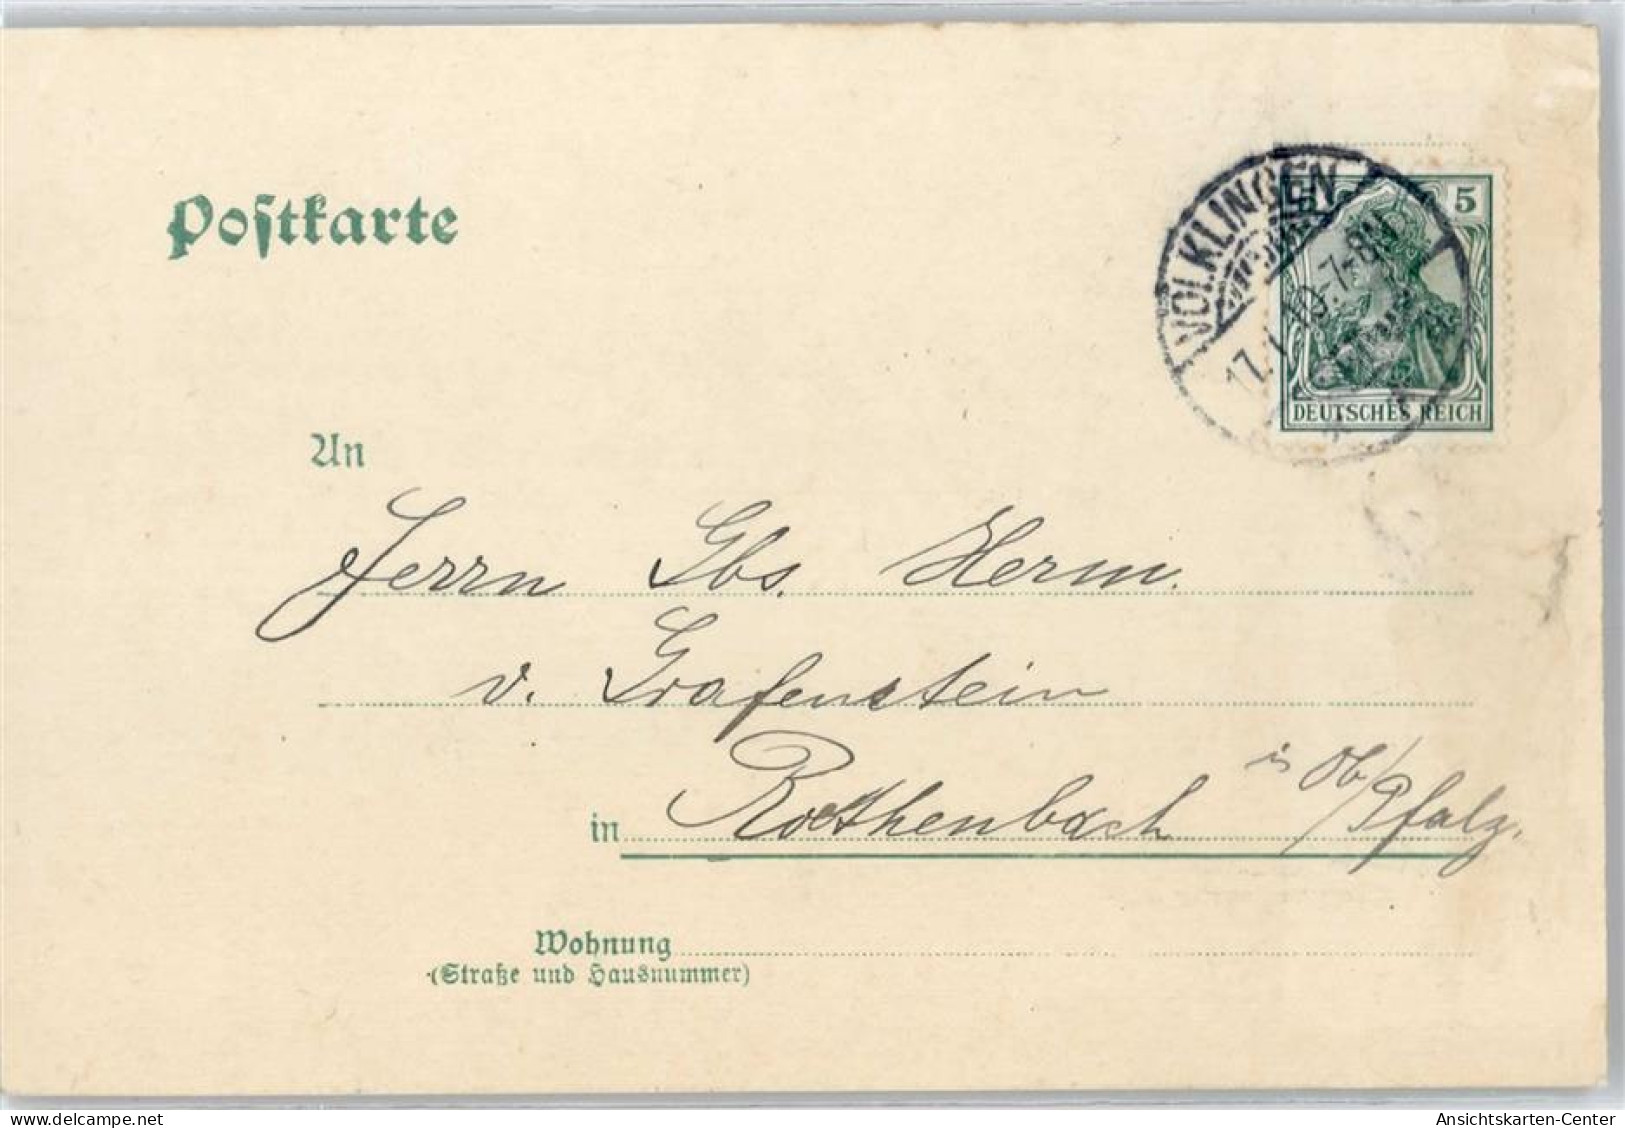 Postkarte
VÖLKLINGEN
5
17. 10. 7-8 N
DEUTSCHES REICH
An
Herrn Gbs. Herm.
v. Grafenstein
in Rothenbach i/ Ob/Pfalz.
Wohnung
(Straße und Hausnummer)
oldthing.de
Ansichtskarten-Center